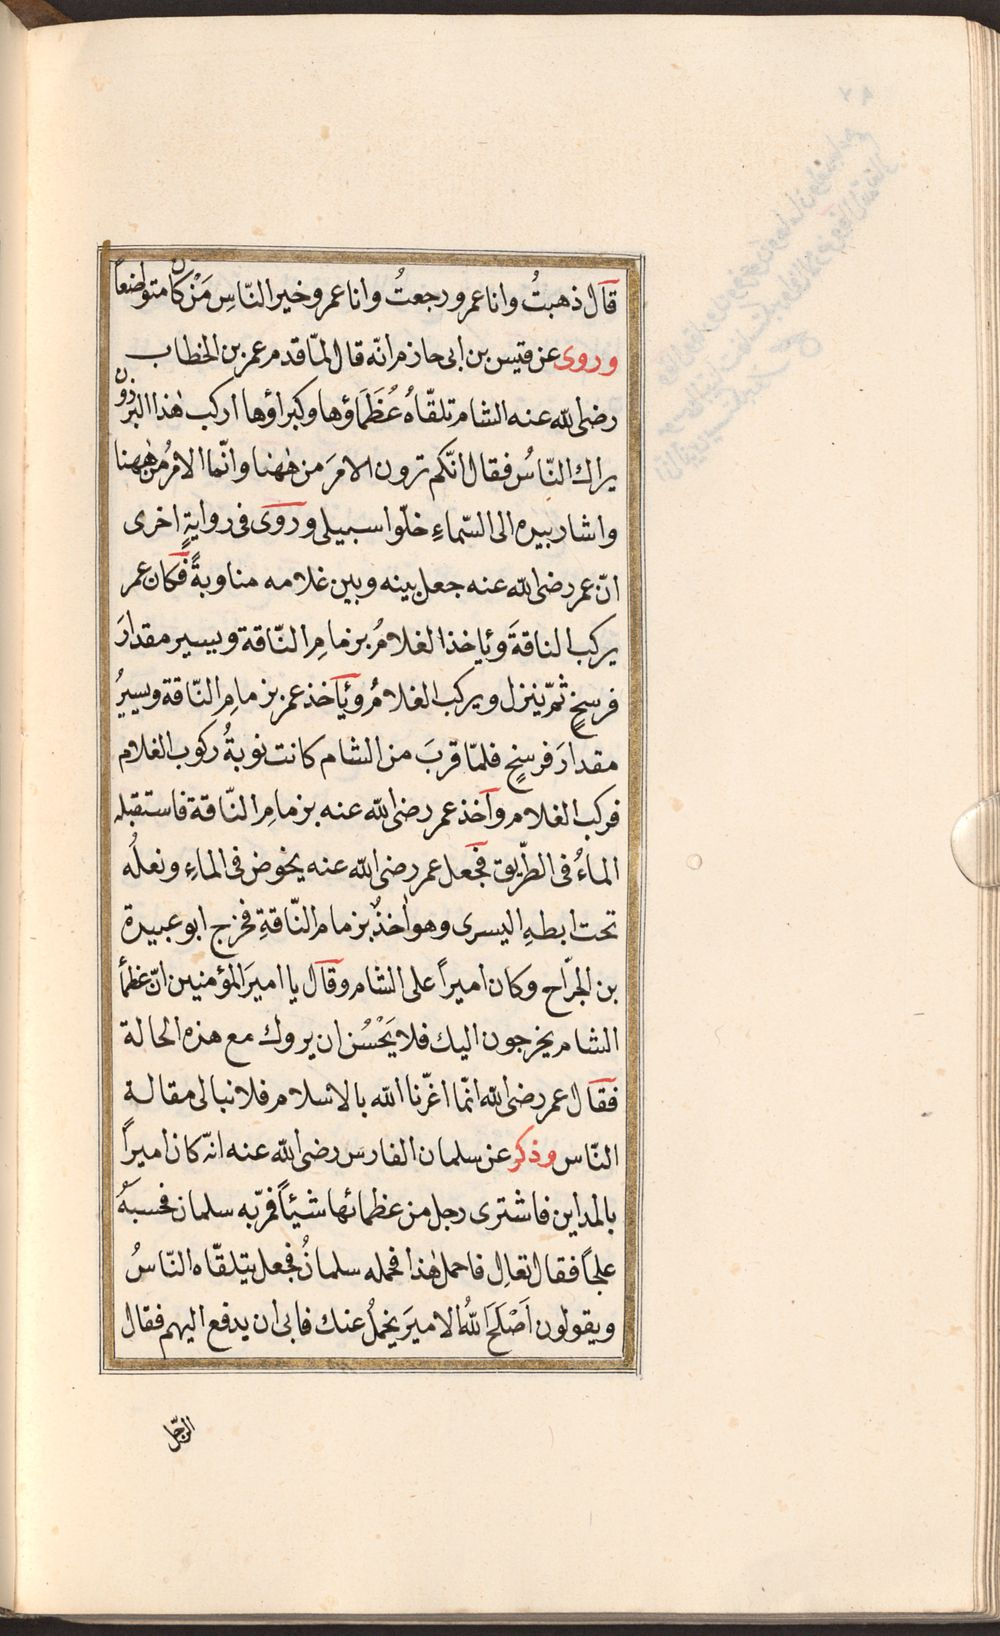 قال ذهبتُ وانا عمر ورجعتُ وانا عمر وخير النّاسِ مَنْ كان متواضعاً
وروى عن قيس بن ابى حازم انّه قال لمّا قدم عمر بن الخطاب
رضى الله عنه الشام تلقّاهُ عُظَمَاؤها وكبراؤها اركب هٰذا البرذون
يراك النّاسُ فقال انّكم ترون الامرَ من هٰهنا وانّما الامرُ من هٰهنا
واشار بيده الى السّماءِ خلّوا سبيلى وروى فى روايةٍ اخرى
انّ عمر رضى الله عنه جعل بينه وبين غلامه مناوبةً فكان عمر
يركب الناقةَ وياخذ الغلامُ بزمامِ النّاقة ويسير مقدارَ
فرسخٍ ثمّ ينزل ويركب الغلامُ وياخذ عمر بزمامِ النّاقة ويسيرُ
مقدارَ فرسخٍ فلمّا قربَ من الشام كانت نوبةُ ركوب الغلام
فركب الغلام واخذ عمر رضى الله عنه بزمامِ النّاقة فاستقبله
الماءُ فى الطّريق فجعل عمر رضى الله عنه يخوض فى الماءِ ونعلُه
تحت ابطهِ اليسرى وهو اٰخذٌ بزمام النّاقةِ فخرج ابو عبيدة
بن الجرّاح وكان اميراً على الشام وقال يا اميرَ المؤمنين انّ عظمأ
الشام يخرجون اليك فلا يَحْسُن ان يروك مع هذه الحالة
فقال عمر رضى الله انّما اعّزنا الله بالاسلام فلا نبالى مقالة
النّاس وذكر عن سلمان الفارس رضى الله عنه انّه كان اميراً
بالمداين فاشترى رجل من عظمائها شيئاً فمرّ به سلمان فحسبهُ
علجاً فقال تعالِ فاحمل هٰذا فحمله سلمانُ فجعل يتلقّاه النّاسُ
ويقولون اَصْلَحَ اللهُ الاميرَ يحملُ عنك فابى ان يدفع اليهم فقال
الرّجل